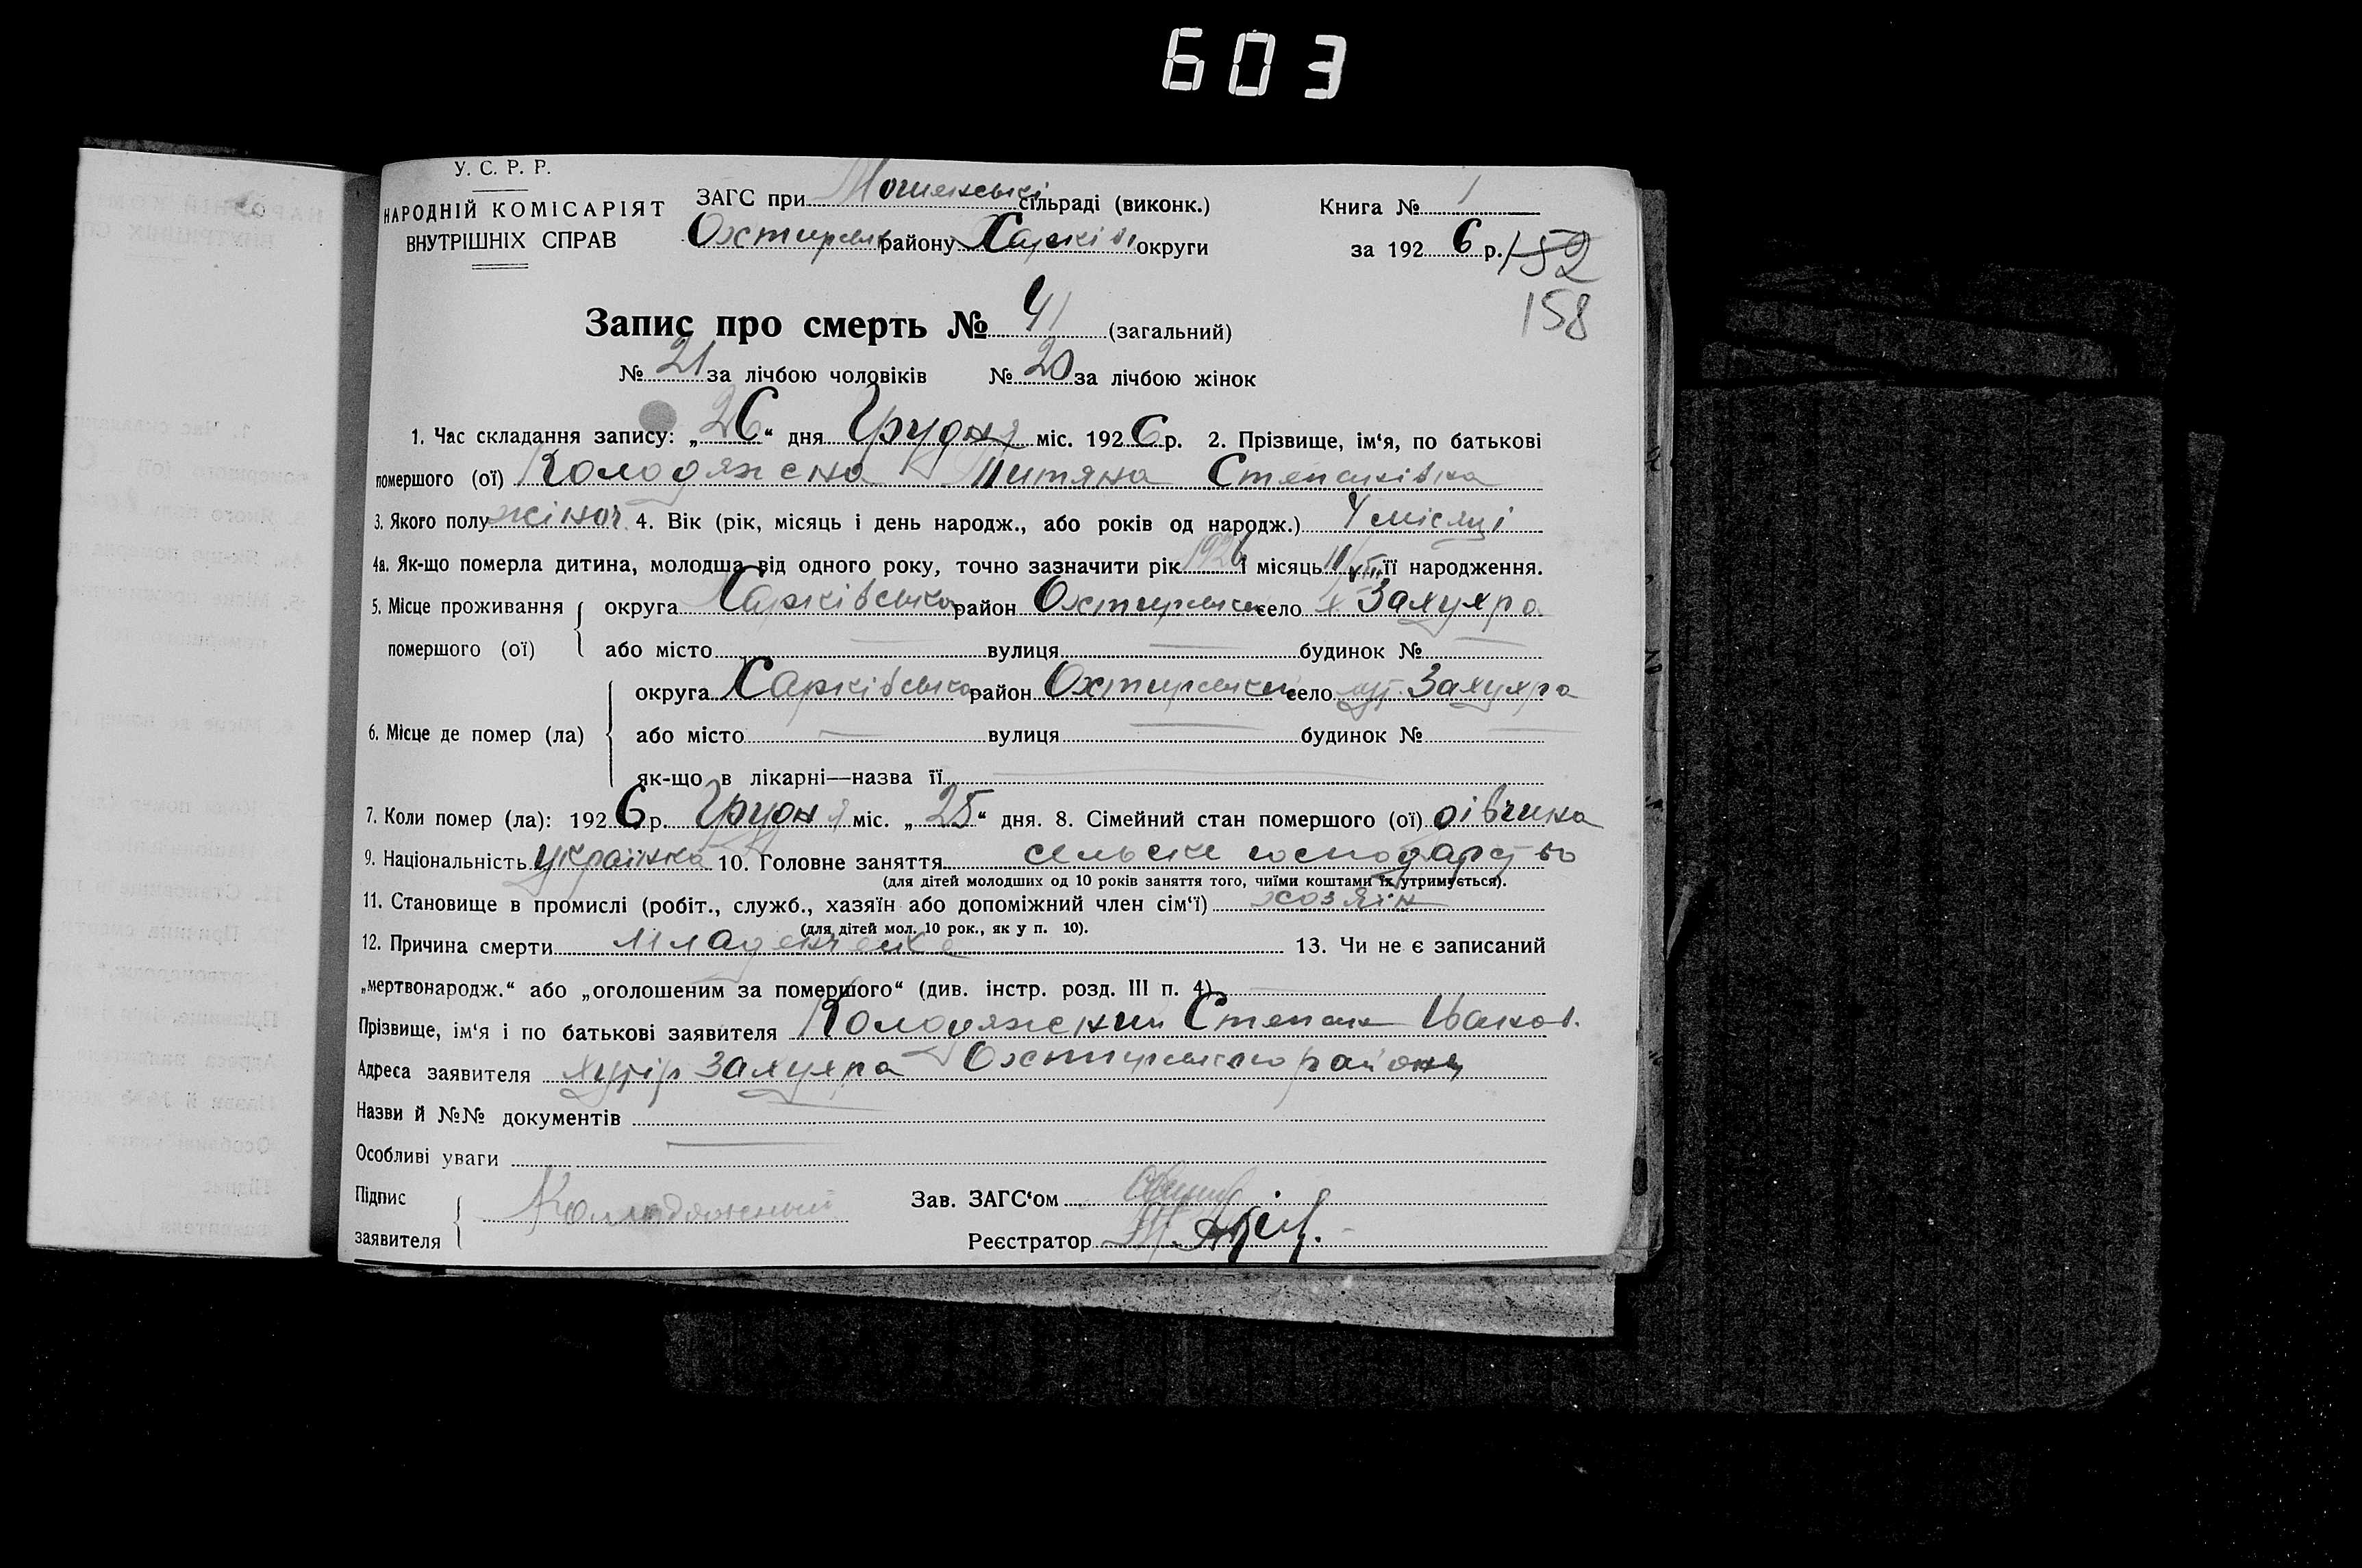 603
У. С. Р. Р.
НАРОДНІЙ КОМІСАРІЯТ
ВНУТРІШНІХ СПРАВ
ЗАГС при сільраді (виконк.)
Охтирськ району Харків округи
Книга № 1
за 1926 р. 152
158
Запис про смерть № 41 (загальний)
№ 21 за лічбою чоловіків № 20 за лічбою жінок
1. Час складання запису: „26“ дня Грудня міс. 1926 р. 2. Прізвище, ім‘я, по батькові
помершого (ої) Колодяжена Титяна Степанівна
3. Якого полу жіноч. 4. Вік (рік, місяць і день народж., або років од народж.) 4 місяці
4а. Як-що померла дитина, молодша від одного року, точно зазначити рік 1926 і місяць її народження.
5. Місце проживання помершого (ої) { округа Харківська район Охтирський село х Захухра
або місто — вулиця — будинок № —
6. Місце де помер (ла) { округа Харківська район Охтирський село хут. Захухра
або місто — вулиця — будинок № —
як-що в лікарні—назва її —
7. Коли помер (ла): 1926 р. Грудня міс. „25“ дня. 8. Сімейний стан помершого (ої) дівчина
9. Національність українка 10. Головне заняття сельске господарство
(для дітей молодших од 10 років заняття того, чиїми коштами їх утримується).
11. Становище в промислі (робіт., служб., хазяїн або допоміжний член сім‘ї) хозяїн
(для дітей мол. 10 рок., як у п. 10).
12. Причина смерти Младенческе 13. Чи не є записаний
„мертвонародж.“ або „оголошеним за помершого“ (див. інстр. розд. III п. 4) —
Прізвище, ім‘я і по батькові заявителя Колодяжний Степан Іванов.
Адреса заявителя хутір Захухра Охтирського району
Назви й №№ документів
Особливі уваги —
Підпис заявителя { Колодяжный
Зав. ЗАГС‘ом
Реєстратор